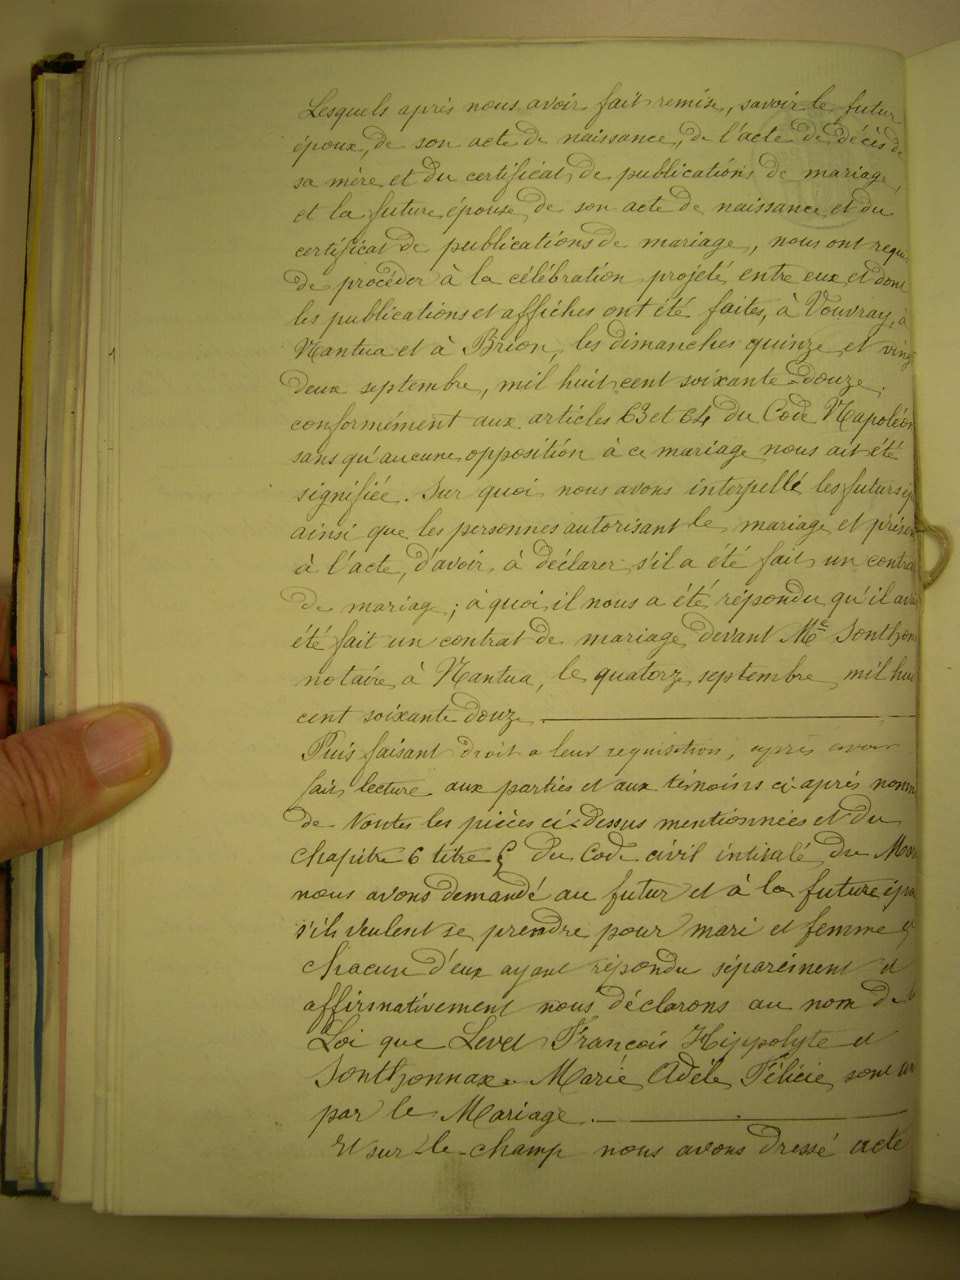 Lesquels après nous avoir fait remise, savoir le futur
époux, de son acte de naissance, de l'acte de décès de
sa mère et du certificat de publications de mariage,
et la future épouse, de son acte de naissance et du
certificat de publications de mariage, nous ont requis
de procéder à la célébration projeté entre eux et dont
les publications et affiches ont été faites, à Vouvray, à
Nantua et à Brion, les dimanches quinze et vingt
deux septembre, mil huit cent soixante-douze,
conformément aux articles 63 et 64 du Code Napoléon
sans qu'aucune opposition à ce mariage nous ait été
signifiée. Sur quoi nous avons interpellé les futurs ép
ainsi que les personnes autorisant le mariage et présen
à l'acte, d'avoir à déclarer s'il a été fait un contra
de mariage; à quoi il nous a été répondu qu'il avai
été fait un contrat de mariage devant Me Sonthon
notaire à Nantua, le quatorze septembre mil hui
cent soixante douze
Puis faisant droit a leur requisition, après avoir
fait lecture aux parties et aux témoins ci-après nommé
de toutes les pièces ci-dessus mentionnées et du
chapitre 6 titre 5 du Code civil intitulé du Mar
nous avons demandé au futur et à la future épou
s'ils veulent se prendre pour mari et femme et
chacun d'eux ayant répondu séparément et
affirmativement nous déclarons au nom de la
Loi que Level François Hippolyte et
Sonthonnax Marie Adèle Félicie sont un
par le Mariage.
Et sur-le-champ nous avons dressé acte